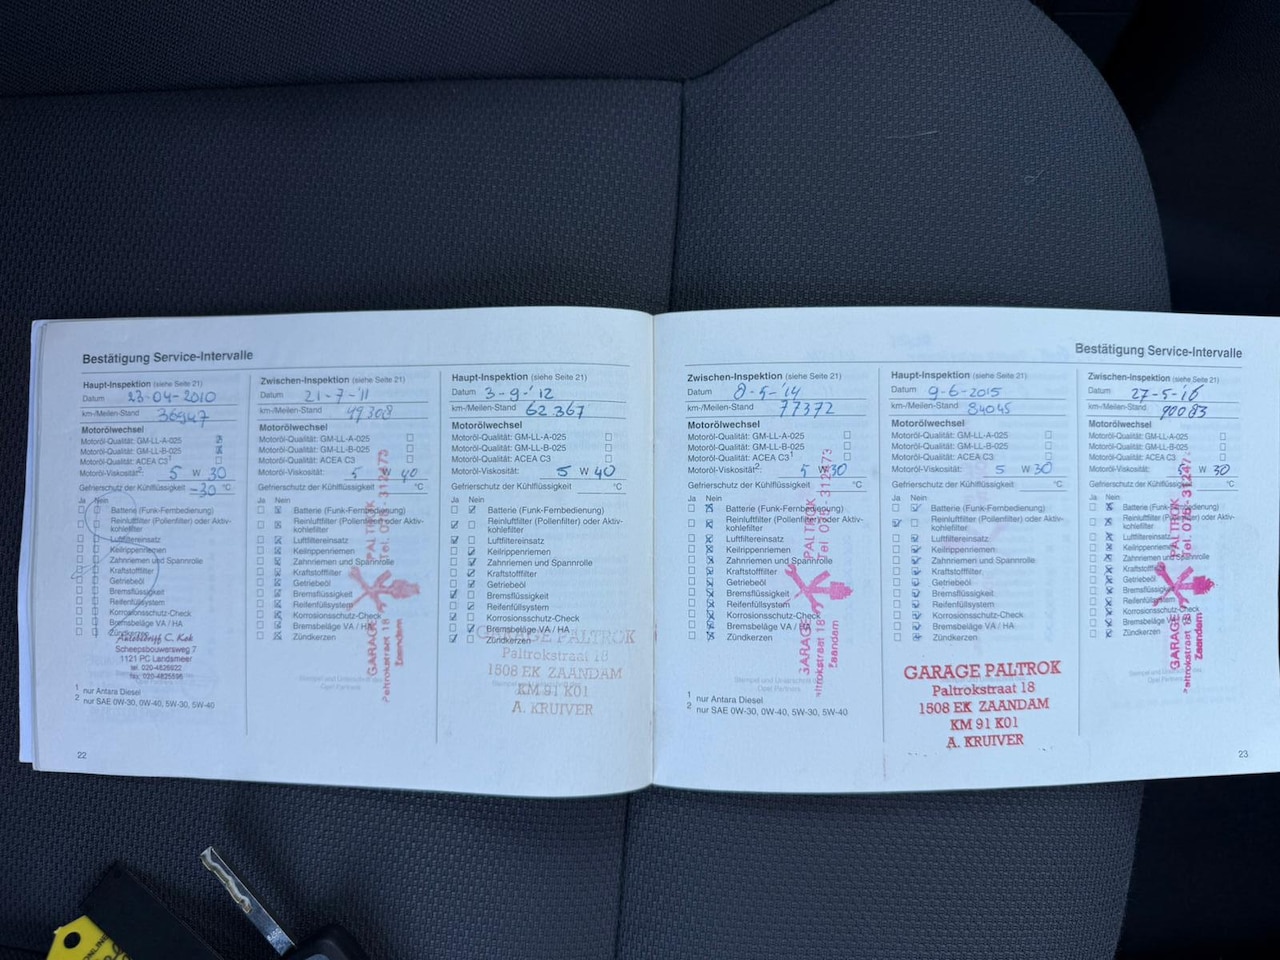 Bestätigung Service-Intervalle
Haupt-Inspektion (siehe Seite 21)
Datum 23-04-2010
km-/Meilen-Stand 36947
Motorölwechsel
Motoröl-Qualität: GM-LL-A-025
Motoröl-Qualität: GM-LL-B-025
Motoröl-Qualität: ACEA C3¹
Motoröl-Viskosität²: 5 W 30
Gefrierschutz der Kühlflüssigkeit -30 °C
Ja Nein
Batterie (Funk-Fernbedienung)
Reinluftfilter (Pollenfilter) oder Aktiv-
kohlefilter
Luftfiltereinsatz
Keilrippenriemen
Zahnriemen und Spannrolle
Kraftstofffilter
Getriebeöl
Bremsflüssigkeit
Reifenfüllsystem
Korrosionsschutz-Check
Bremsbeläge VA / HA
Zündkerzen
C. Kok
Scheepsbouwersweg 7
1121 PC Landsmeer
tel. 020-4825622
fax. 020-4825596
¹ nur Antara Diesel
² nur SAE 0W-30, 0W-40, 5W-30, 5W-40
22
Zwischen-Inspektion (siehe Seite 21)
Datum 21-7-'11
km-/Meilen-Stand 49308
Motorölwechsel
Motoröl-Qualität: GM-LL-A-025
Motoröl-Qualität: GM-LL-B-025
Motoröl-Qualität: ACEA C3
Motoröl-Viskosität: 5 W 40
Gefrierschutz der Kühlflüssigkeit °C
Ja Nein
Batterie (Funk-Fernbedienung)
Reinluftfilter (Pollenfilter) oder Aktiv-
kohlefilter
Luftfiltereinsatz
Keilrippenriemen
Zahnriemen und Spannrolle
Kraftstofffilter
Getriebeöl
Bremsflüssigkeit
Reifenfüllsystem
Korrosionsschutz-Check
Bremsbeläge VA / HA
Zündkerzen
GARAGE PALTROK
Paltrokstraat 18 Tel. 075 312473
Zaandam
Stempel und Unterschrift des
Opel Partners
Haupt-Inspektion (siehe Seite 21)
Datum 3-9-'12
km-/Meilen-Stand 62.367
Motorölwechsel
Motoröl-Qualität: GM-LL-A-025
Motoröl-Qualität: GM-LL-B-025
Motoröl-Qualität: ACEA C3
Motoröl-Viskosität: 5 W 40
Gefrierschutz der Kühlflüssigkeit °C
Ja Nein
Batterie (Funk-Fernbedienung)
Reinluftfilter (Pollenfilter) oder Aktiv-
kohlefilter
Luftfiltereinsatz
Keilrippenriemen
Zahnriemen und Spannrolle
Kraftstofffilter
Getriebeöl
Bremsflüssigkeit
Reifenfüllsystem
Korrosionsschutz-Check
Bremsbeläge VA / HA
Zündkerzen
GARAGE PALTROK
Paltrokstraat 18
1508 EK ZAANDAM
KM 91 K01
A. KRUIVER
Bestätigung Service-Intervalle
Zwischen-Inspektion (siehe Seite 21)
Datum 8-5-'14
km-/Meilen-Stand 77372
Motorölwechsel
Motoröl-Qualität: GM-LL-A-025
Motoröl-Qualität: GM-LL-B-025
Motoröl-Qualität: ACEA C3¹
Motoröl-Viskosität²: 5 W 30
Gefrierschutz der Kühlflüssigkeit °C
Ja Nein
Batterie (Funk-Fernbedienung)
Reinluftfilter (Pollenfilter) oder Aktiv-
kohlefilter
Luftfiltereinsatz
Keilrippenriemen
Zahnriemen und Spannrolle
Kraftstofffilter
Getriebeöl
Bremsflüssigkeit
Reifenfüllsystem
Korrosionsschutz-Check
Bremsbeläge VA / HA
Zündkerzen
GARAGE PALTROK
Paltrokstraat 18 Tel. 075 312473
Zaandam
¹ nur Antara Diesel
² nur SAE 0W-30, 0W-40, 5W-30, 5W-40
Haupt-Inspektion (siehe Seite 21)
Datum 9-6-2015
km-/Meilen-Stand 84045
Motorölwechsel
Motoröl-Qualität: GM-LL-A-025
Motoröl-Qualität: GM-LL-B-025
Motoröl-Qualität: ACEA C3
Motoröl-Viskosität: 5 W 30
Gefrierschutz der Kühlflüssigkeit °C
Ja Nein
Batterie (Funk-Fernbedienung)
Reinluftfilter (Pollenfilter) oder Aktiv-
kohlefilter
Luftfiltereinsatz
Keilrippenriemen
Zahnriemen und Spannrolle
Kraftstofffilter
Getriebeöl
Bremsflüssigkeit
Reifenfüllsystem
Korrosionsschutz-Check
Bremsbeläge VA / HA
Zündkerzen
GARAGE PALTROK
Paltrokstraat 18
1508 EK ZAANDAM
KM 91 K01
A. KRUIVER
Zwischen-Inspektion (siehe Seite 21)
Datum 27-5-'16
km-/Meilen-Stand 90083
Motorölwechsel
Motoröl-Qualität: GM-LL-A-025
Motoröl-Qualität: GM-LL-B-025
Motoröl-Qualität: ACEA C3
Motoröl-Viskosität: 5 W 30
Gefrierschutz der Kühlflüssigkeit °C
Ja Nein
Batterie (Funk-Fernbedienung)
Reinluftfilter (Pollenfilter) oder Aktiv-
kohlefilter
Luftfiltereinsatz
Keilrippenriemen
Zahnriemen und Spannrolle
Kraftstofffilter
Getriebeöl
Bremsflüssigkeit
Reifenfüllsystem
Korrosionsschutz-Check
Bremsbeläge VA / HA
Zündkerzen
GARAGE PALTROK
Paltrokstraat 18 Tel. 075 312473
Zaandam
23